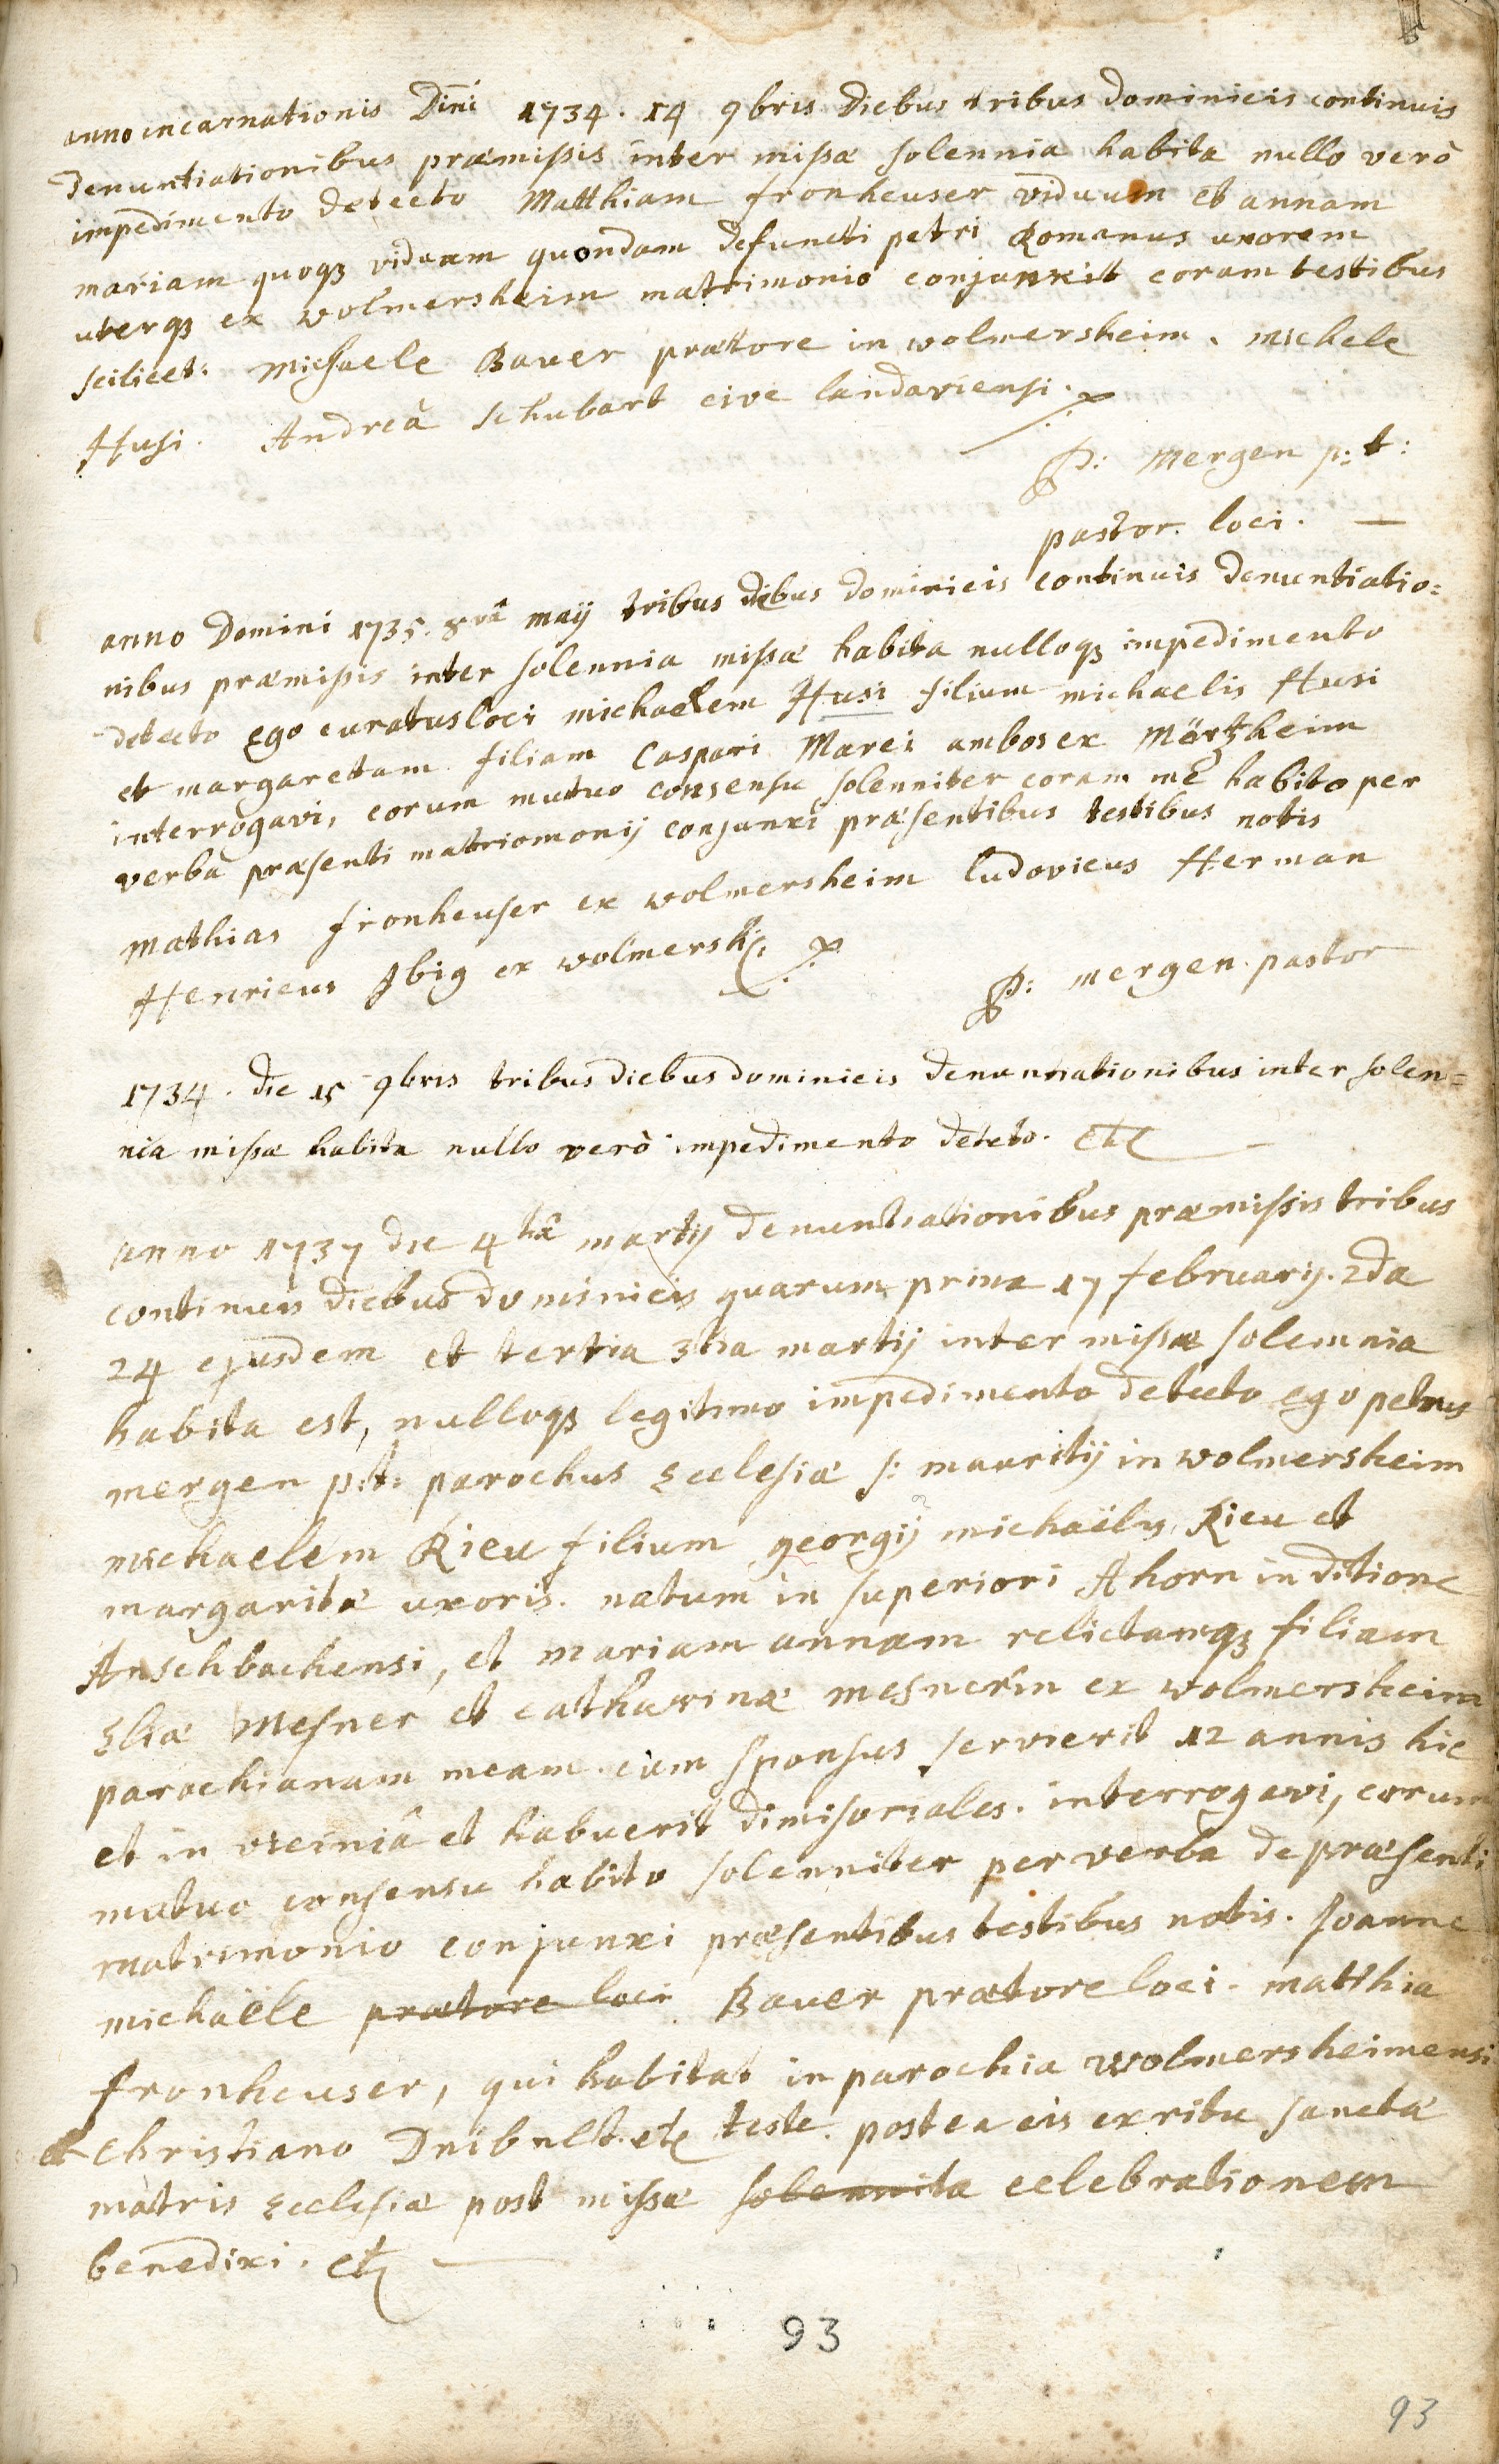 anno incarnationis Dini 1734. 14 9bris Diebus tribus dominicis continuis
denuntiationibus præmißis inter mißæ solennia habita nullo verò
impedimento detecto Matthiam fronheuser viduum et annam
mariam quoqz viduam quondam defuncti petri Romanus uxorem
uterqz ex wolmersheim matrimonio conjunxit coram testibus
scilicet: Michaele Baver prættore in wolmersheim. Michele
Husi. Andreâ schubart cive landaviensi.
P: Mergen p: t:
pastor loci. —
anno Domini 1735. 8vâ maij tribus diebus dominicis continuis denuntiatio=
nibus præmißis inter solennia mißæ habita nulloqz impedimento
detecto Ego curatus loci michaelem Husi filium michaelis Husi
et margaretam filiam Caspari Marei ambos ex Mörtzheim
interrogavi, eorum mutuo consensu solenniter coram me habito per
verbà præsenti matriomonij conjunxi præsentibus testibus notis
Mathias fronheuser ex wolmersheim ludovicus Herman
Henricus Jbig ex wolmersh:
P: mergen pastor
1734. die 15 9bris tribus diebus dominicis denunnationibus inter solen=
nia mißæ habita nullo verò impedimento deteto. etc —
anno 1737 die 4tâ martij denuntiationibus præmissis tribus
continuis diebus dominicis quarum prima 17 februarij. 2da
24 ejusdem et tertia 3tia martij inter mißæ solemnia
habita est, nulloqz legitimo impedimento detecto ego petrus
mergen p:t: parochus Ecclesiæ s: mauritij in wolmersheim
michaelem Rieu filium georgij michaëlis Rieu et
margaritæ uxoris. natum in superiori Ahorn in ditione
Anschbachensi, et mariam annam relictamqz filiam
Eliæ Mesner et catharinæ mesnerin ex wolmersheim
parochianam meam. cum sponsus servierit 12 annis hic
et in viciniâ et habuerit dimisoriales. interrogavi, eorum
mutuo consensu habito solenniter per verba de præsenti
matrimonio conjunxi præsentibus testibus notis. Joanne
michaële prætore loci Baver prætore loci. matthia
fronheuser, qui habitat in parochia wolmersheimensi
et christiano teste. postea eis ex ritu sanctæ
matris Ecclesiæ post mißæ solennita celebrationem
benedixi. etc —
93
93